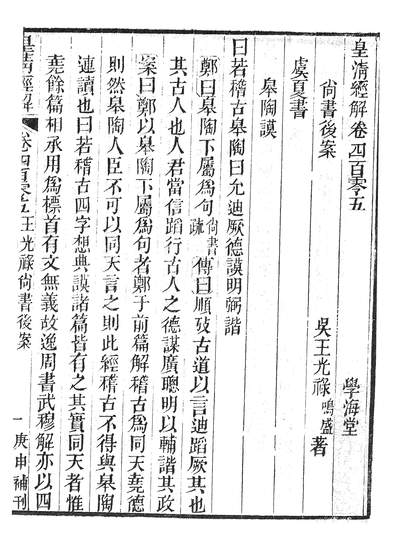 皇清經解卷四百零五
學海堂
尚書後案
吳王光祿鳴盛著
虞夏書
皋陶謨
曰若稽古皋陶曰允迪厥德謨明弼諧
鄭曰皋陶下屬爲句尚書疏傳曰順攷古道以言迪蹈厥其也
其古人也人君當信蹈行古人之德謀廣聰明以輔諧其政
案曰鄭以皋陶下屬爲句者鄭于前篇解稽古爲同天堯德
則然皋陶人臣不可以同天言之則此經稽古不得與皋陶
連讀也曰若稽古四字想典謨諸篇皆有之其實同天者惟
堯餘篇相承用爲標首有文無義故逸周書武穆解亦以四
皇清經解
卷四百零五王光祿尚書後案
一
庚申補刊